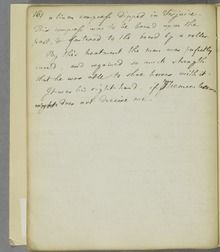 161 a linen compress dipped in Verjuice.
This compress was to be bound upon the
part, & fastened to the hand by a roller
By this treatment the man was perfectly
cured and regained so much strength
that he was able to shoe horses with it
It was his right hand, if Thomas
does not deceive me.